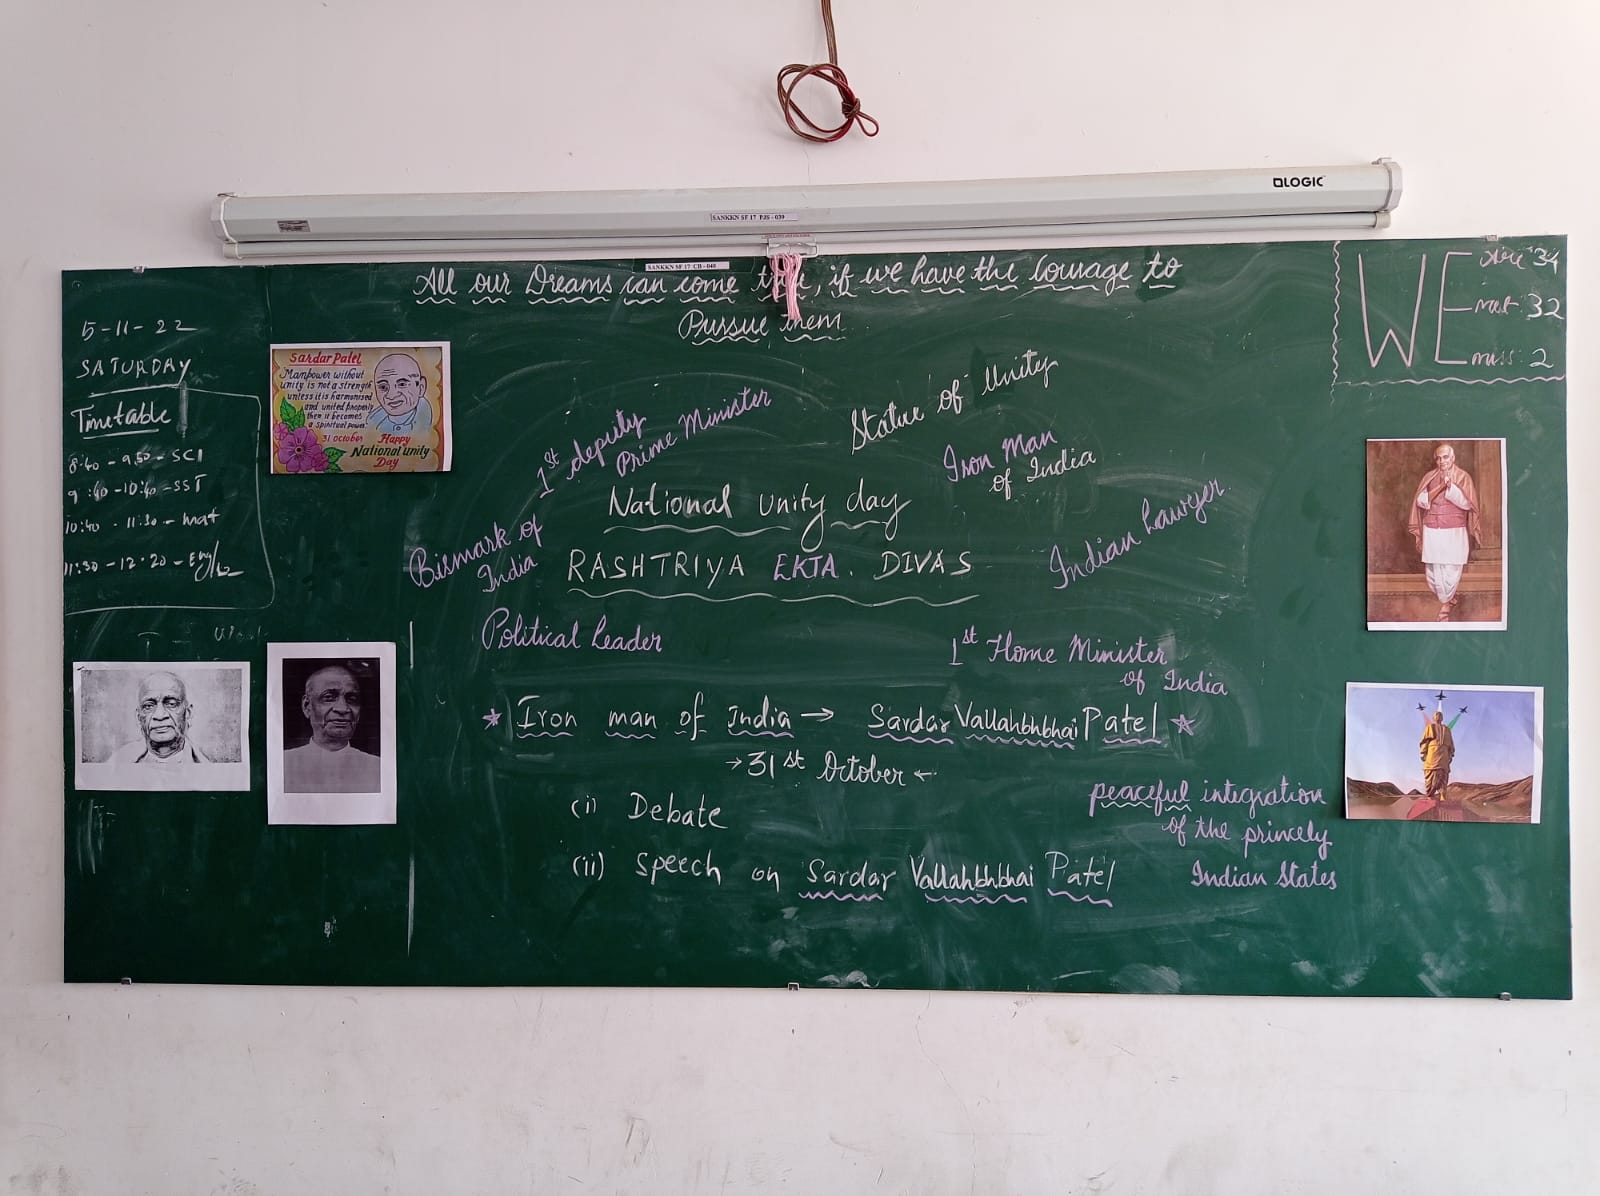 QLOGIC
SANKKN SF 17 PJS - 030
SANKKN SF 17 CB - 040
All our Dreams can come true, if we have the Courage to
Pursue them
5-11-22
SATURDAY
Timetable
8:40 - 9:30 - SCI
9:40 - 10:40 - SST
10:40 - 11:30 - mat
11:30 - 12:20 - Eng/
Sardar Patel
Manpower without
unity is not a strength
unless it is harmonised
and united properly
then it becomes
a spiritual power.
31 October Happy
National unity
Day
WE
34
32
2
1st deputy
Prime Minister
Statue of Unity
Iron Man
of India
National unity day
Bismark of
India
RASHTRIYA EKTA. DIVAS
Indian Lawyer
Political Leader
1st Home Minister
of India
Iron man of India → Sardar Vallahbhbhai Patel
→ 31st October ←
(i) Debate
(ii) Speech on Sardar Vallahbhbhai Patel
peaceful integration
of the princely
Indian States